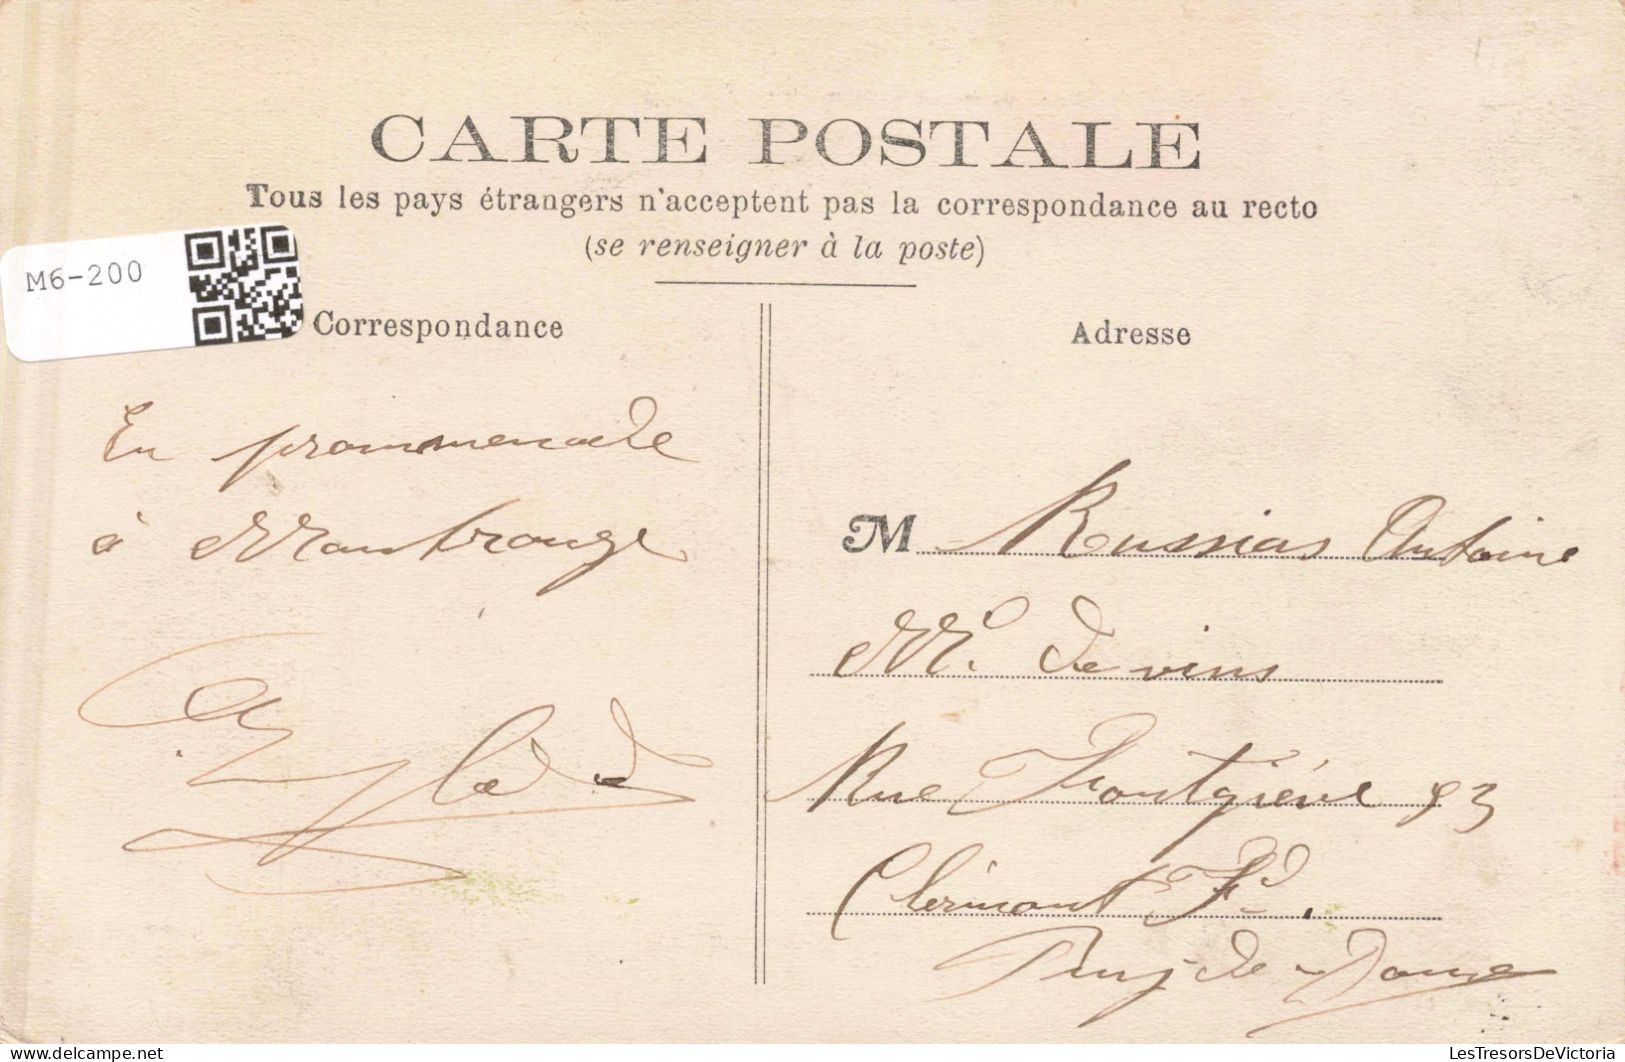 CARTE POSTALE
Tous les pays étrangers n'acceptent pas la correspondance au recto
(se renseigner à la poste)
M6-200
Correspondance
En prommenade
à Montrouge
Adresse
M Russias Antoine
Md de vins
Rue Fontgiéve 93
Clermont Fd.
Puy-de-Dome
LesTresorsDeVictoria